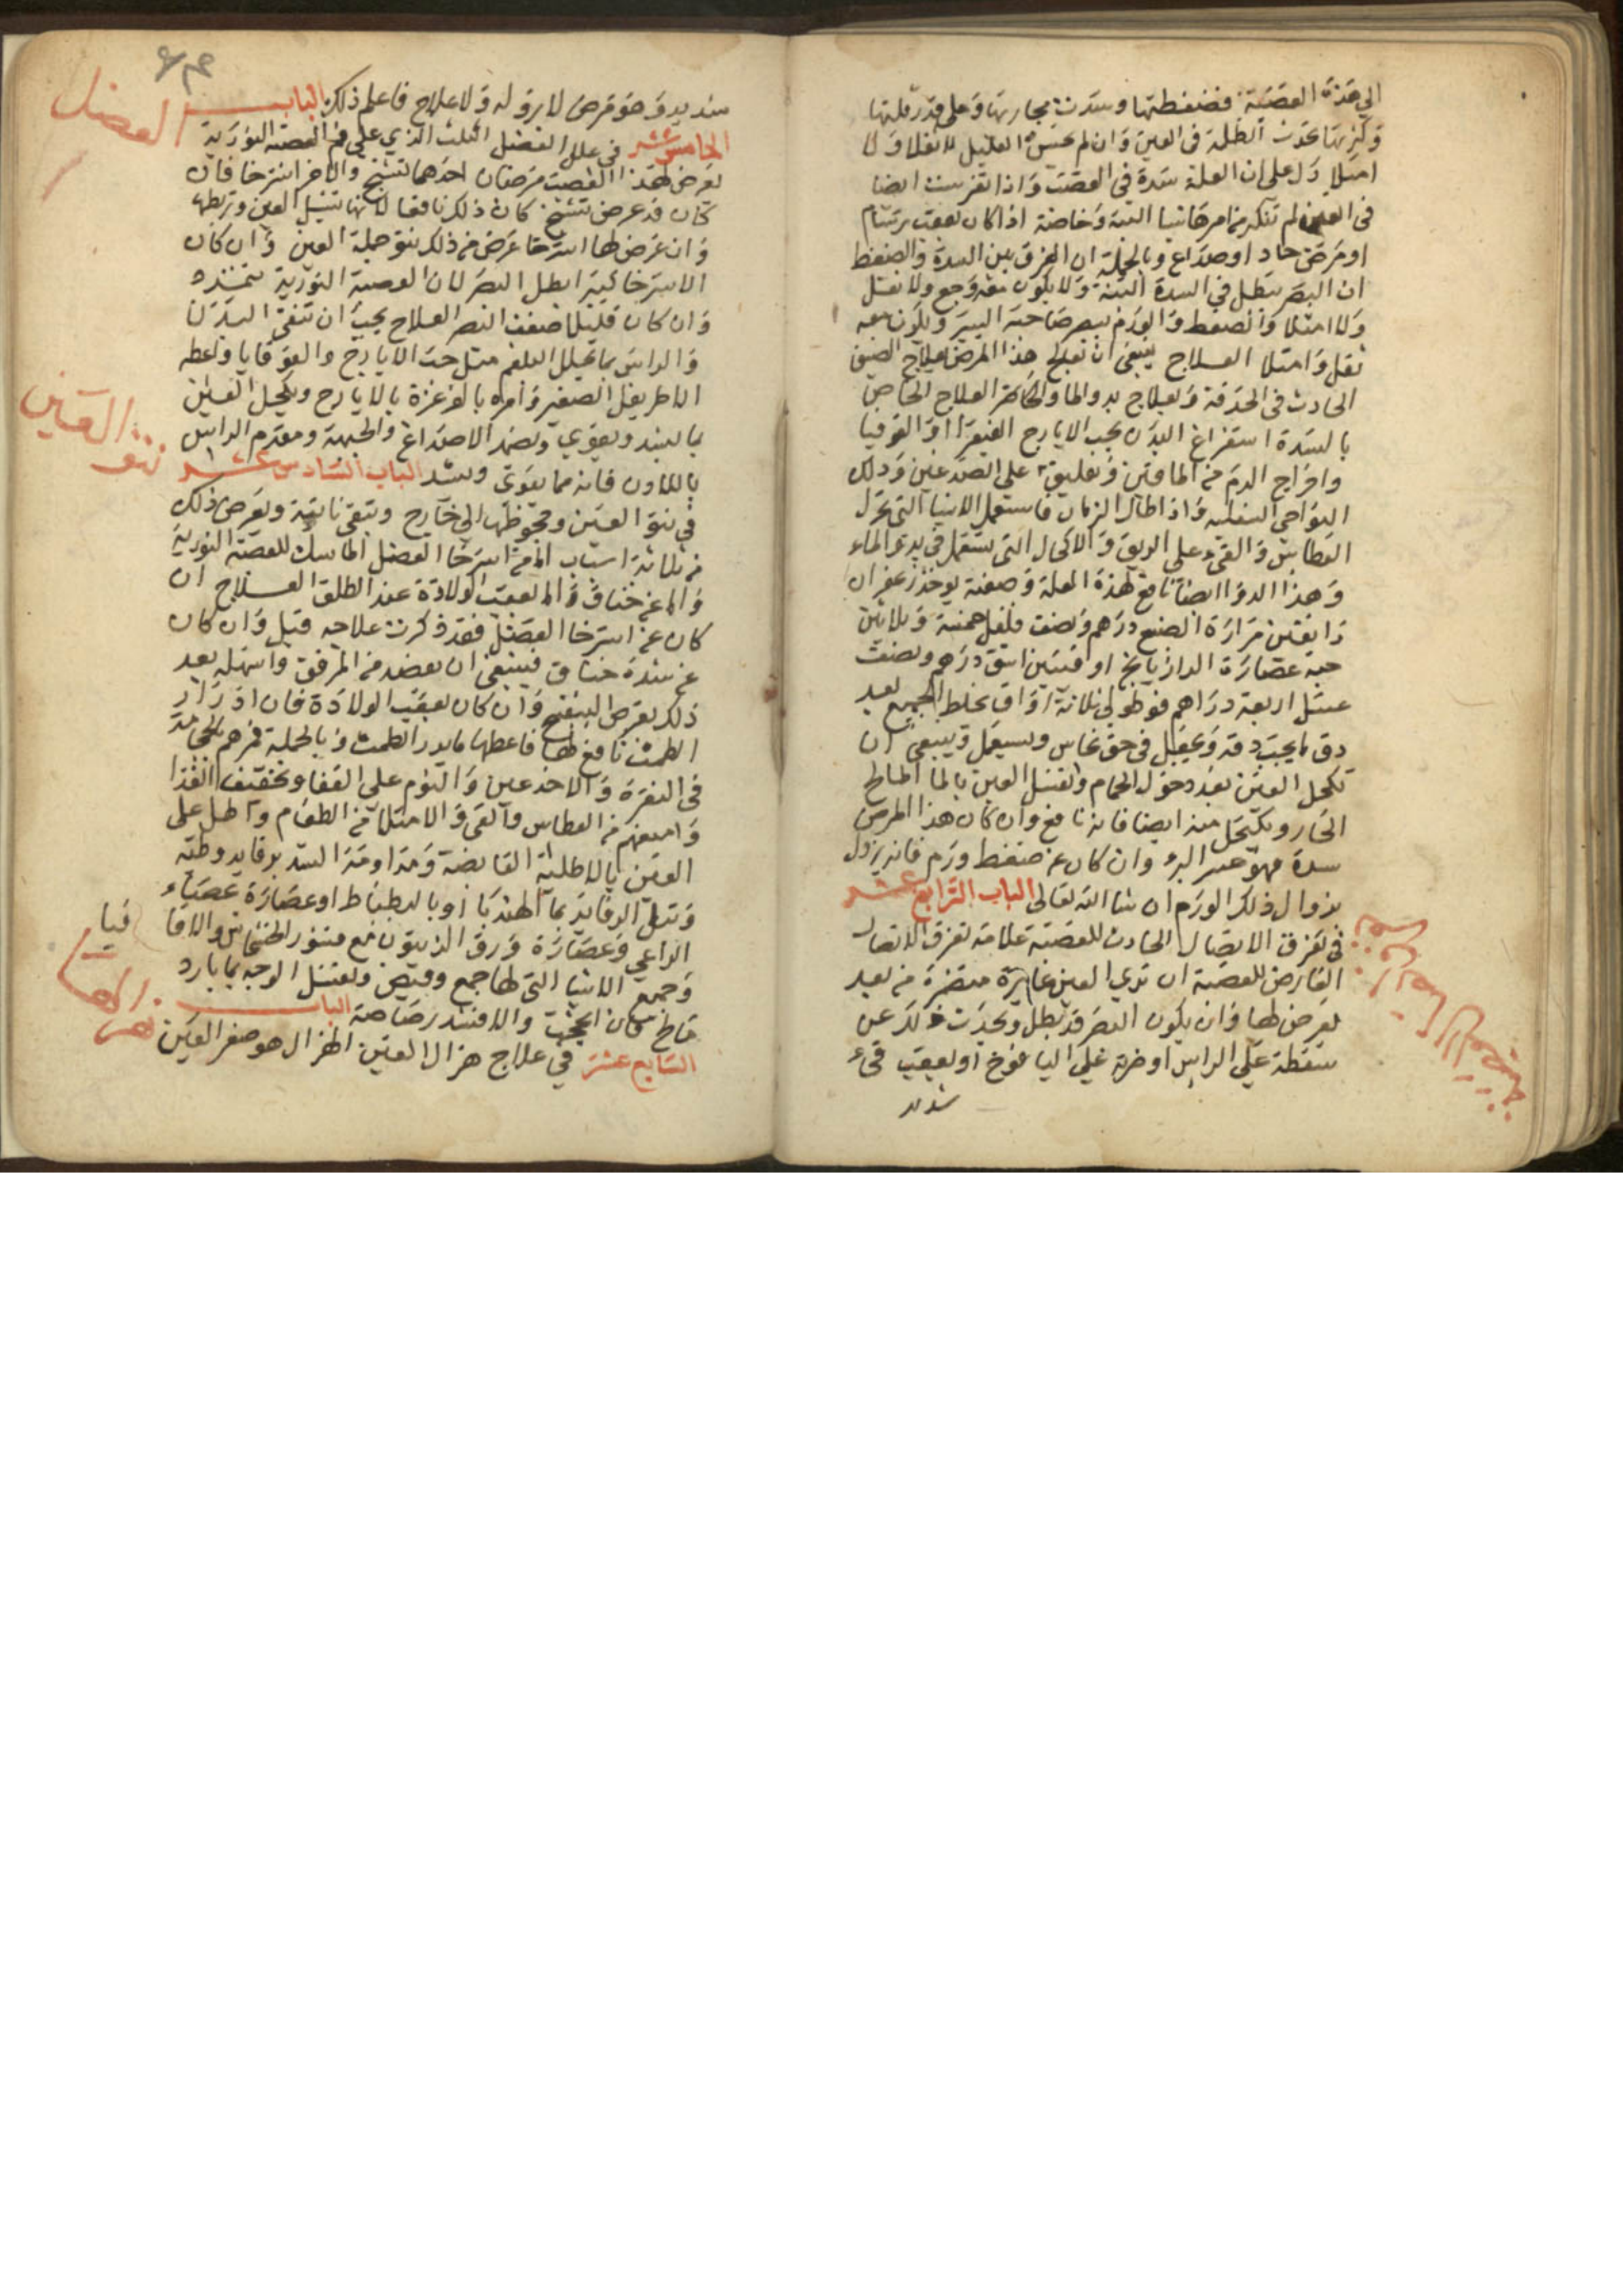 الي هذه العصبة فضغطتها وسدت مجاريها وعلى قدر قلتها
وكثرتها تحدث الظلمة في العين وان لم يحس العليل لا ثقلا ولا
امتلا دل على ان العلة سدة في العصب واذا تفرست ايضا
في العين لم تنكر من امرها شيا البتة وخاصة اذا كان بعقب برسام
او مرض حاد او صداع وبالجملة ان الفرق بين السدة والضغط
ان البصر يبطل في السدة البتة ولا يكون معه وجع ولا ثقل
ولا امتلا والضغط والورم يبصر صاحبه اليسير ويكون معه
ثقل وامتلا العلاج ينبغي ان تعالج هذا المرض بعلاج الضيق
الحادث في الحدقة وبعلاج بدو الماء العلاج الخاص
بالسدة استفراغ البدن بحب الايارج الفيقرا او القوقيا
واخراج الدم من الماقين وتعليق على الصدغين ودلك
النواحي السفلية واذا طال الزمان فاستعمل الاشيا التي تحرك
العطاس والقيء على الريق والاكحال التي تستعمل في بدو الماء
وهذا الدوا ايضا نافع لهذه العلة وصفته يوخذ زعفران
دانقين مرارة الضبع درهم ونصف فلفل خمسة وثلاثين
حبة عصارة الرازيانج اوقيتين اشق درهم ونصف
عسل اربعة دراهم ثلاثة اواق يخلط الجميع بعد
دق ما يجب دقه ويجعل في حق نحاس ويستعمل وينبغي ان
تكحل العين بعد دخول الحمام وتغسل العين بالما المالح
الحار ويكتحل منه ايضا فانه نافع وان كان هذا المرض
سدة فهو عسر البرء وان كان عن ضغط ورم فانه يزول
بزوال ذلك الورم ان شا الله تعالى الباب الرابع عشر
في تفرق الاتصال الحادث للعصبة علامة تفرق الاتصال
العارض للعصبة ان تري العين غايرة من بعد
يعرض لها وان يكون البصر قد بطل ويحدث ذلك عن
سقطة على الراس او ضربة على اليافوخ او بعقب قيء
شديد
شديد وهو مرض لا برو له ولا علاج فاعلم ذلك الباب
العضل
الخامس عشر في علل العضل الثلث الذي على فم العصبة النورية
يعرض لهذا العصب مرضان احدهما تشنج والاخر استرخا فان
كان قد عرض تشنج كان ذلك نافعا لانها تشيل العين وتربطها
وان عرض لها استرخا عرض من ذلك نتو جملة العين وان كان
الاسترخا كثير ابطل البصر لان العصبة النورية تتمدد
وان كان قليلا ضعف البصر العلاج يجب ان تنقي البدن
والراس بما يحلل البلغم مثل حب الايارج والقوقايا وتعطه
الاطريفل الصغير وامره بالغرغرة بالايارج وتكحل العين
بما يشد ويقوي وتضمد الاصداغ والجبهة ومقدم الراس
نتو العين
باللادن فانه مما يقوي ويشد الباب السادس عشر
في نتو العين وجحوظها الى خارج وتبقى ناتية ويعرض ذلك
من ثلاثة اسباب اما من استرخا العضل الماسك للعصبة النورية
واما عن خناق واما بعقب الولادة عند الطلق العلاج ان
كان عن استرخا العضل فقد ذكرت علاجه قبل وان كان
عن شدة خناق فينبغي ان يفصد من المرفق واسهله بعد
ذلك بقرص البنفسج وان كان بعقب الولادة فان ادرار
الطمث نافع لها فاعطها ما يدر الطمث وبالجملة فمرهم بالحجامة
في النقرة والاخدعين والنوم على القفا وتخفيف الغذا
وامنعهم من العطاس والقيء والامتلا من الطعام واطل على
العين بالاطلية القابضة ومداومة الشد برفايد وطيه
وتبل الرفايد بما الهندبا او بالبطباط او عصارة عصا
الراعي وعصارة ورق الزيتون مع قشور الخشخاش والاقا
قيا
وجميع الاشيا التي لها جمع وقبض وتغسل الوجه بما بارد
مالح كان اعجب والا فشد رصاصة الباب
هزال العين
السابع عشر في علاج هزال العين الهزال هو صغر العين